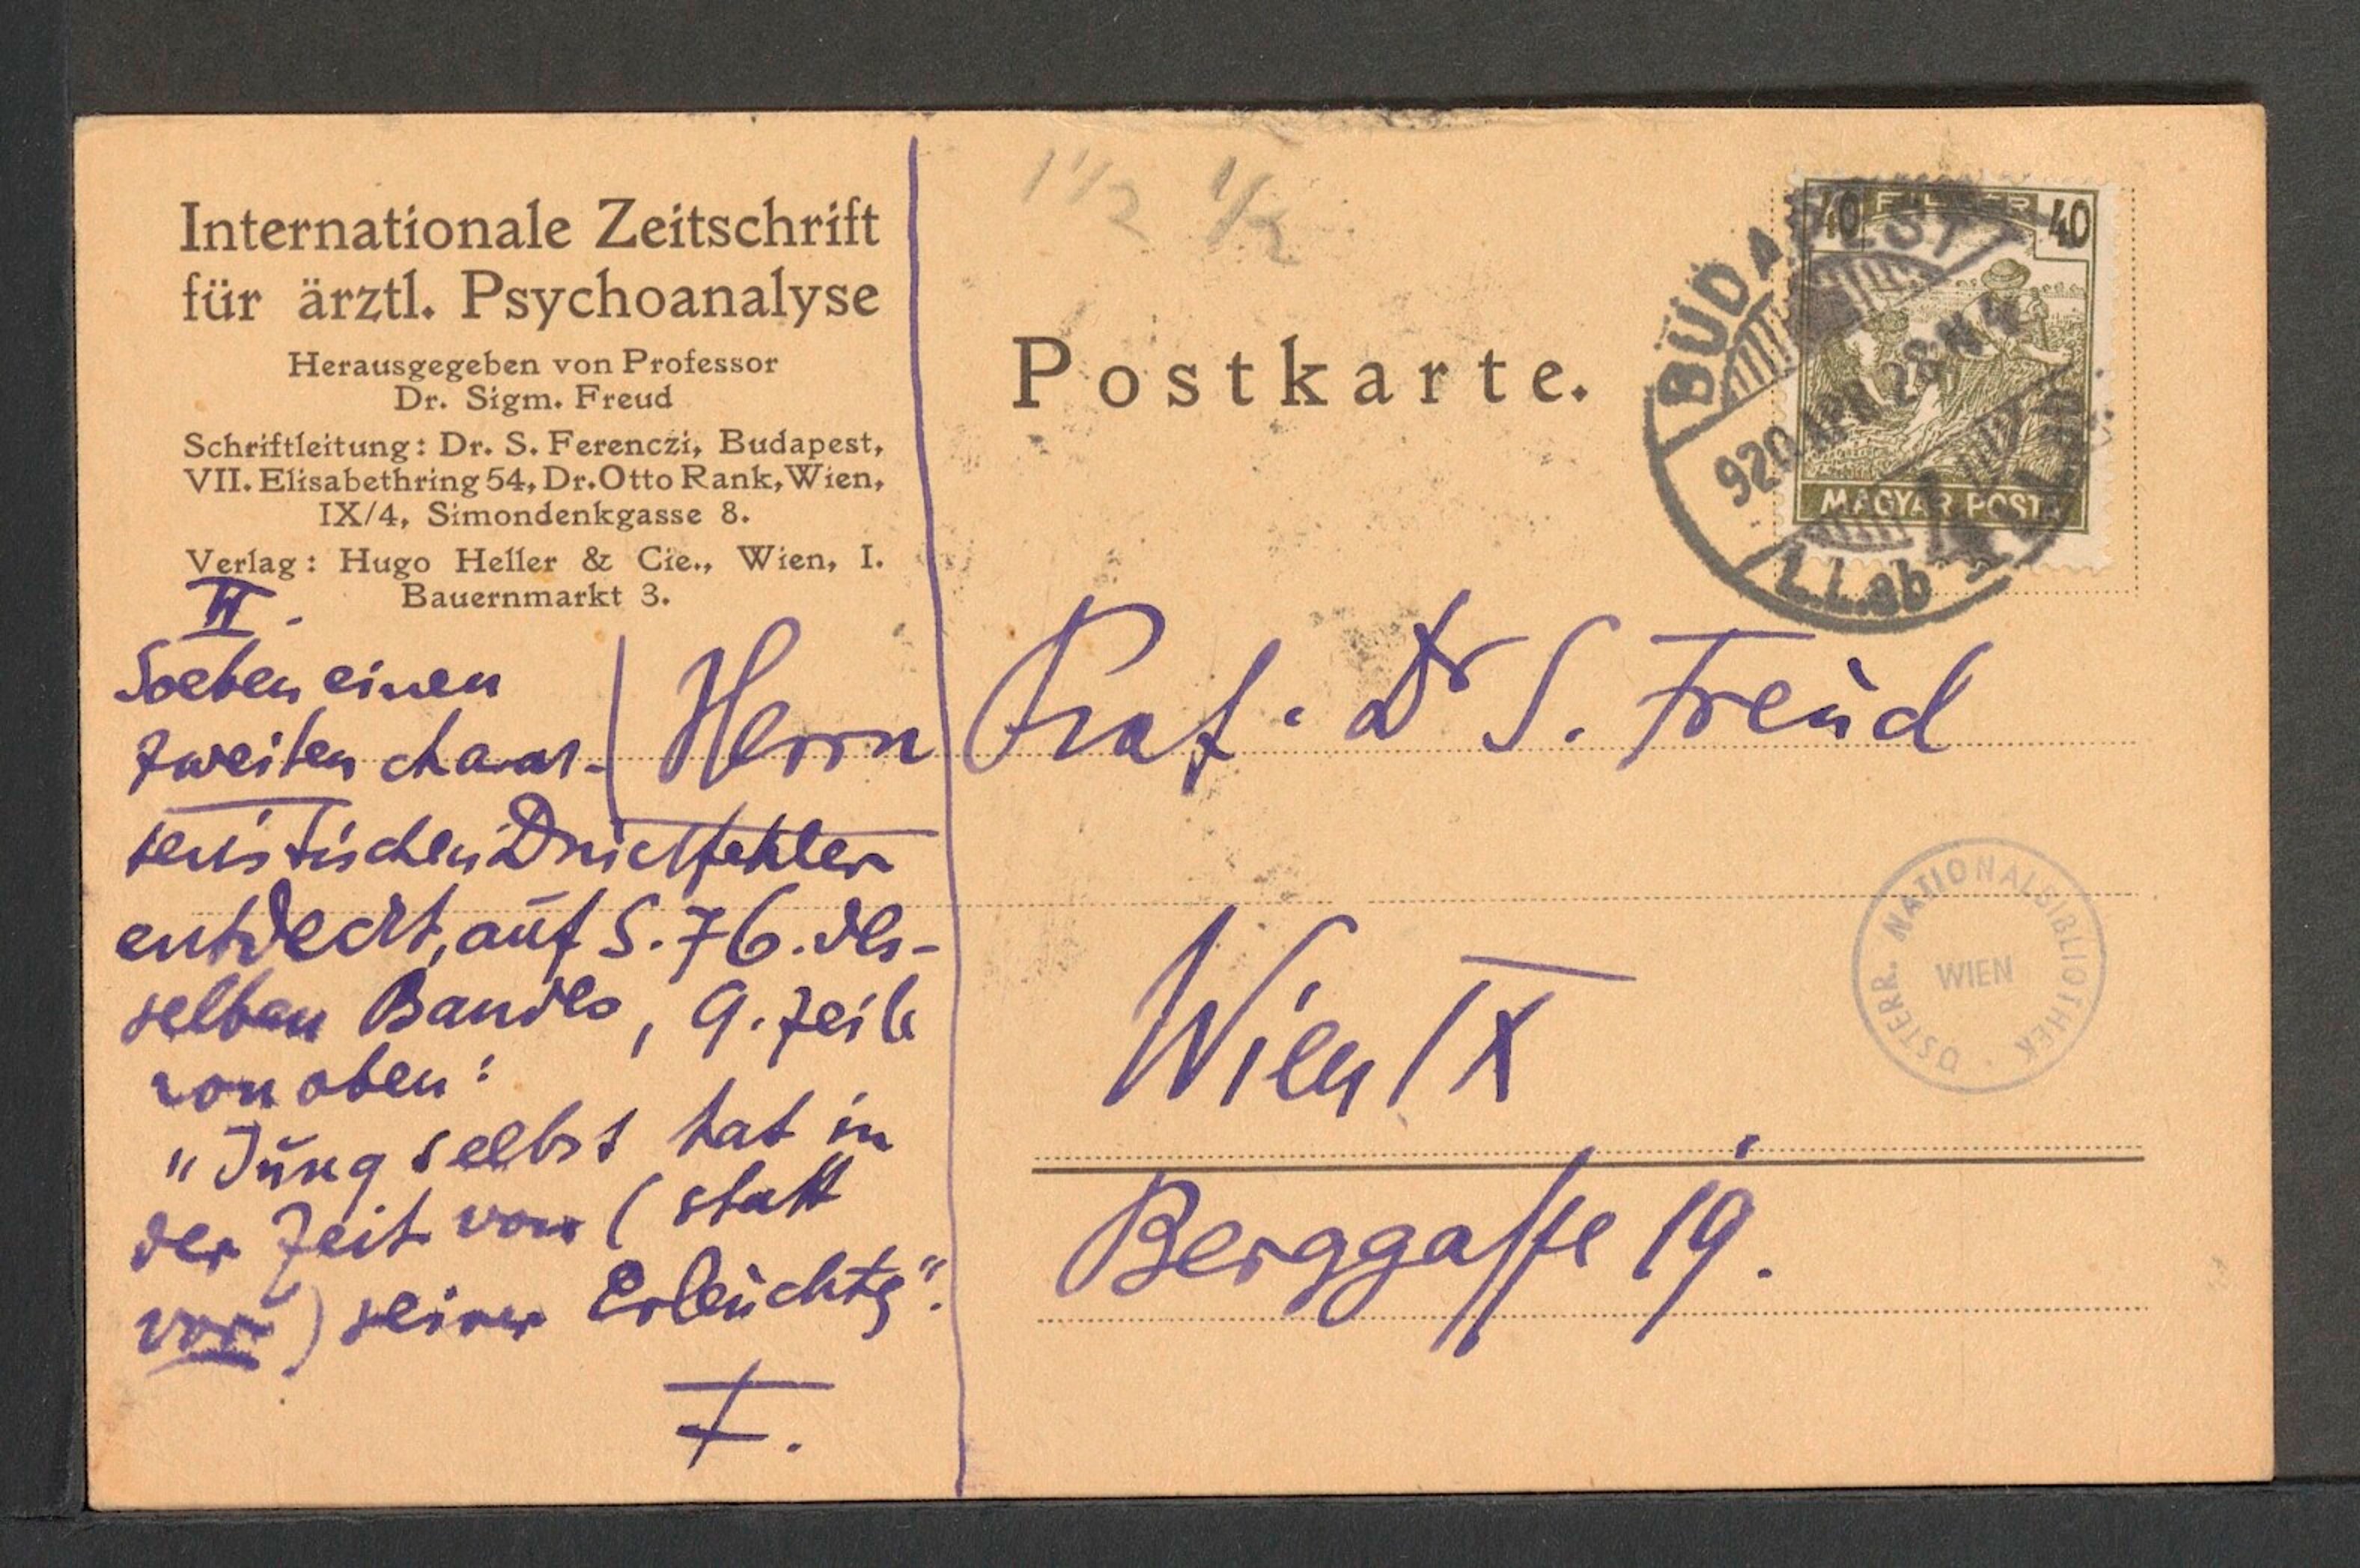 Internationale Zeitschrift
für ärztl. Psychoanalyse
Herausgegeben von Professor
Dr. Sigm. Freud
Schriftleitung: Dr. S. Ferenczi, Budapest,
VII. Elisabethring 54, Dr. Otto Rank, Wien,
IX/4, Simondenkgasse 8.
Verlag: Hugo Heller & Cie., Wien, I.
Bauernmarkt 3.
II.
Soeben einen
zweiten charak-
teristischen Druckfehler
entdeckt, auf S. 76. des-
selben Bandes, 9. Zeile
von oben:
"Jung selbst hat in
der Zeit von (statt
vor) seiner Erleuchtg".
F.
1 1/2 1/2
Postkarte.
40 FILLÉR 40
MAGYAR POSTA
BUDAPEST
920 APR 28
Herrn Prof. Dr S. Freud
Wien IX
Berggasse 19.
ÖSTERR. NATIONALBIBLIOTHEK
WIEN